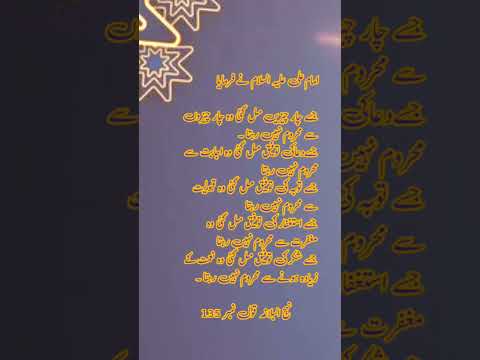 امام علی علیہ السلام نے فرمایا
جسے چار چیزیں مل گئی وہ چار چیزوں
سے محروم نہیں رہتا۔
جسے دعا کی توفیق مل گئی وہ اجابت سے
محروم نہیں رہتا
جسے توبہ کی توفیق مل گئی وہ قبولیت
سے محروم نہیں رہتا
جسے استغفار کی توفیق مل گئی وہ
مغفرت سے محروم نہیں رہتا
جسے شکر کی توفیق مل گئی وہ نعمت کے
زیادہ ہونے سے محروم نہیں رہتا۔
نہج البلاغہ قول نمبر 135